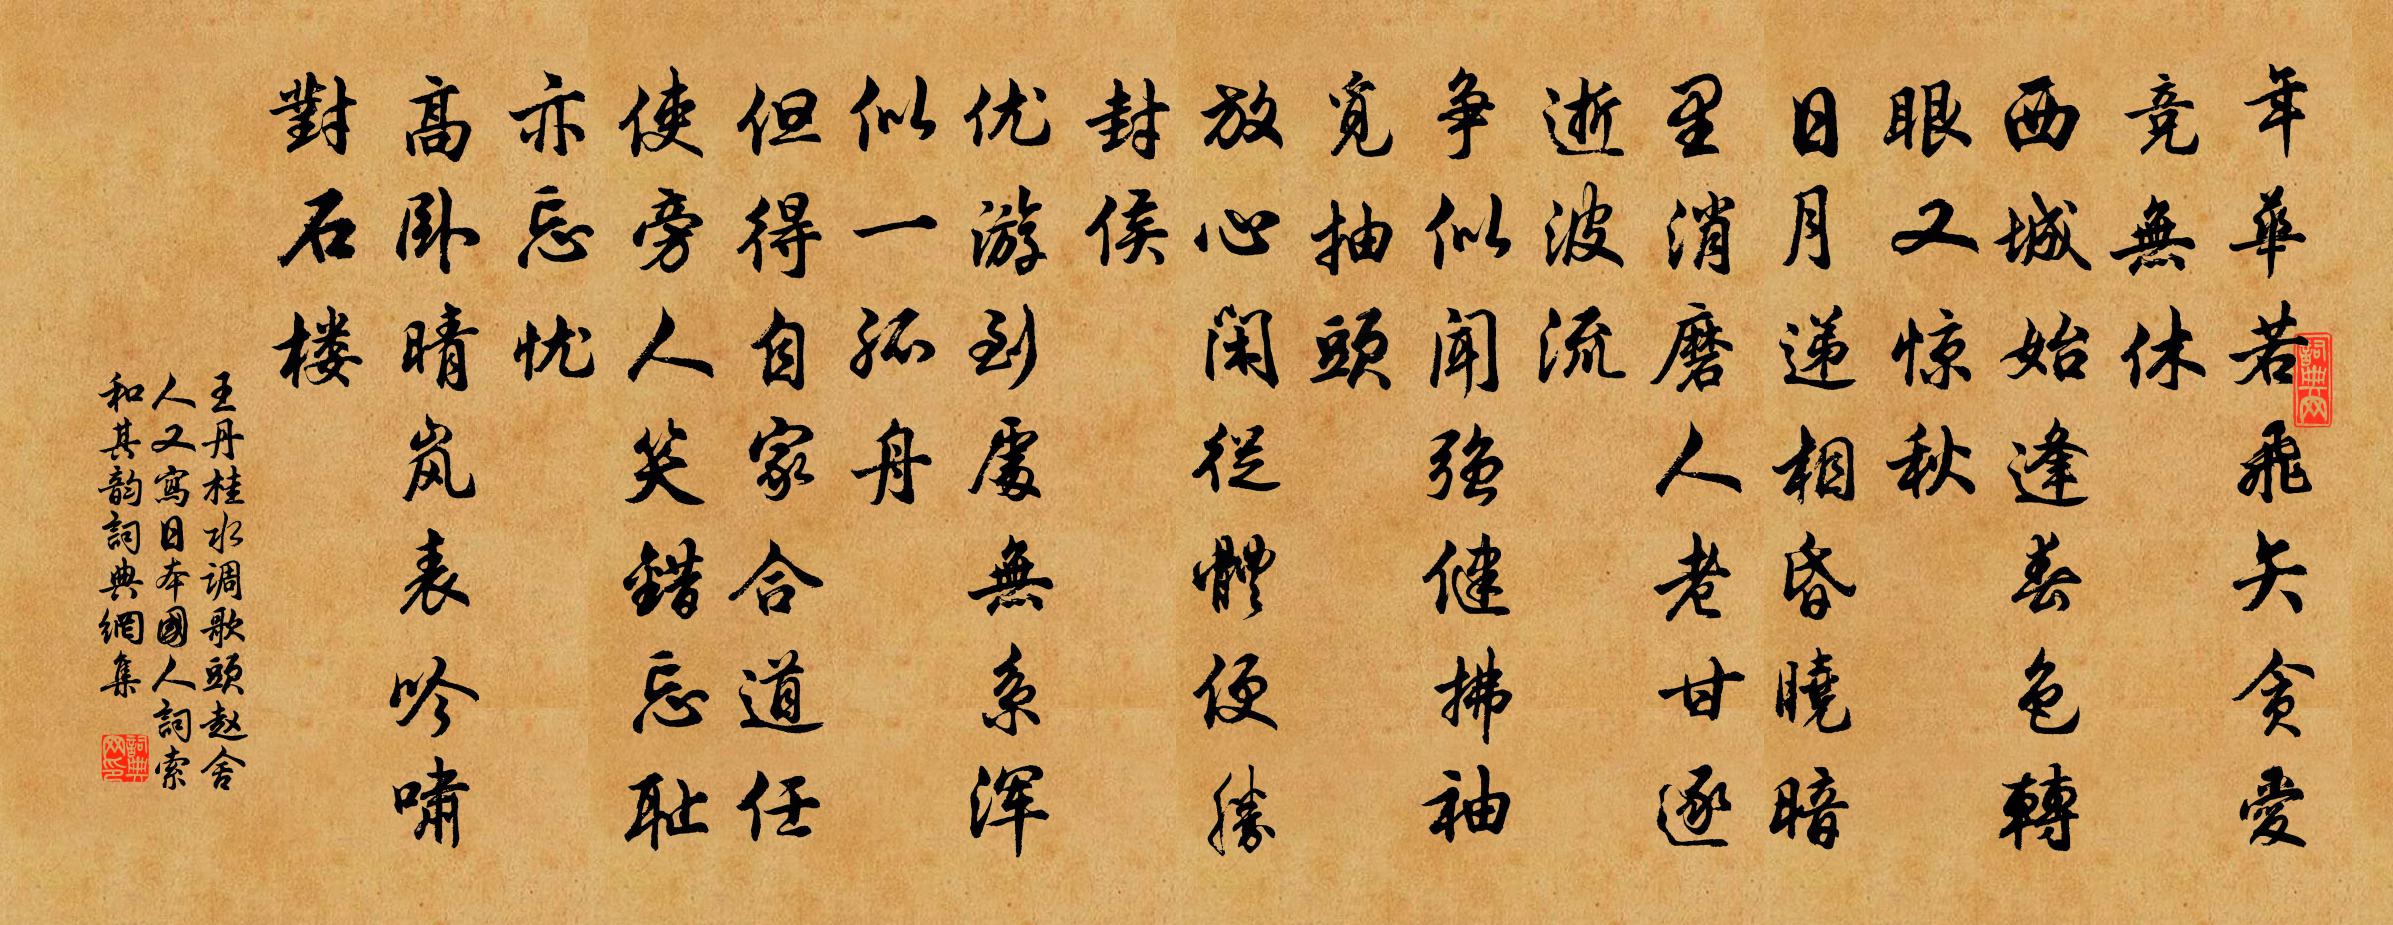 年華若飛矢貪愛
竞無休
西城始逢春色轉
眼又惊秋
日月递相昏曉暗
里消磨人老甘逐
逝波流
争似闻强健拂袖
觅抽頭
放心闲從體便勝
封侯
优游到處無系浑
似一孤舟
但得自家合道任
使旁人笑錯忘耻
亦忘忧
高卧晴岚表吟嘯
對石楼
王丹桂水调歌頭赵舍
人又寫日本國人詞索
和其韵詞典網集
詞典网
詞典网印